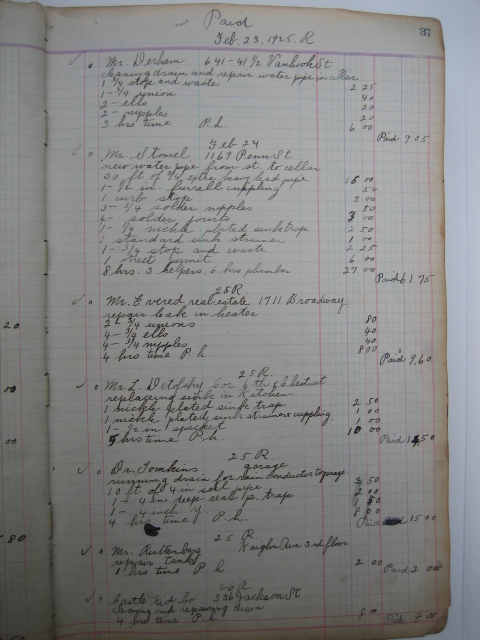 Paid 37
Feb. 23, 1925. R
Mr. Derham 641-41 1/2 Vanhook St
cleaning drain and repair water pipe in cellar
1 3/4 stop and waste 2 25
1- 3/4 union 40
2- ells 20
2- nipples 20
3 hrs time P.h. 6 00
Paid 9 05
Feb 24
Mr. Stomel 1169 Penn St
new water pipe from st. to cellar
30 ft of 3/4 extra heavy lead pipe 15 00
1- 1/2 in. furrell cuppling 50
1 curb stop 3 00
3- 3/4 solder nipples 50
4- solder joints 3 00
1- 1/4 nickle plated sink trap 2 50
1 standard sink strainer 1 00
1- 3/4 stop and waste 2 25
1 street permit 6 00
8 hrs. 3 helpers. 6 hrs plumber 27 00
Paid 61 75
25 R
Mr. Evered real estate 1711 Broadway
repair leak in heater
2- 3/4 unions 80
4- 3/4 ells 40
4- 3/4 nipples 40
4 hrs time P.h. 8 00
Paid 9,60
25 R.
Mr L. 6th
replaceing sink in Kitchen
1 nickle plated sink trap 2 50
1 nickle plated sink strainer cuppling 1 00
1- 1/2 in spicket 1 00
5 hrs time P.h. 10 00
Paid 14 50
25 R.
Dr. Tomkins garage
running drain for rain conductor to garage
10 ft of 4 in soil pipe 3 50
1- 4 in deep seal p. trap 2 00
1- 4 inch y. 1 50
4 hrs time P.h. 8 00
Paid 15 00
25 R
Mr. Ruttenberg Kaighn Ave 3rd floor
repair tank
1 hrs time P h 2 00
Paid 2 00
26 R
Castle Kid Co 536 Jackson St
cleaning and repairing drain
4 hrs time P.h 8 00
Paid 8 00
20
00
00
80